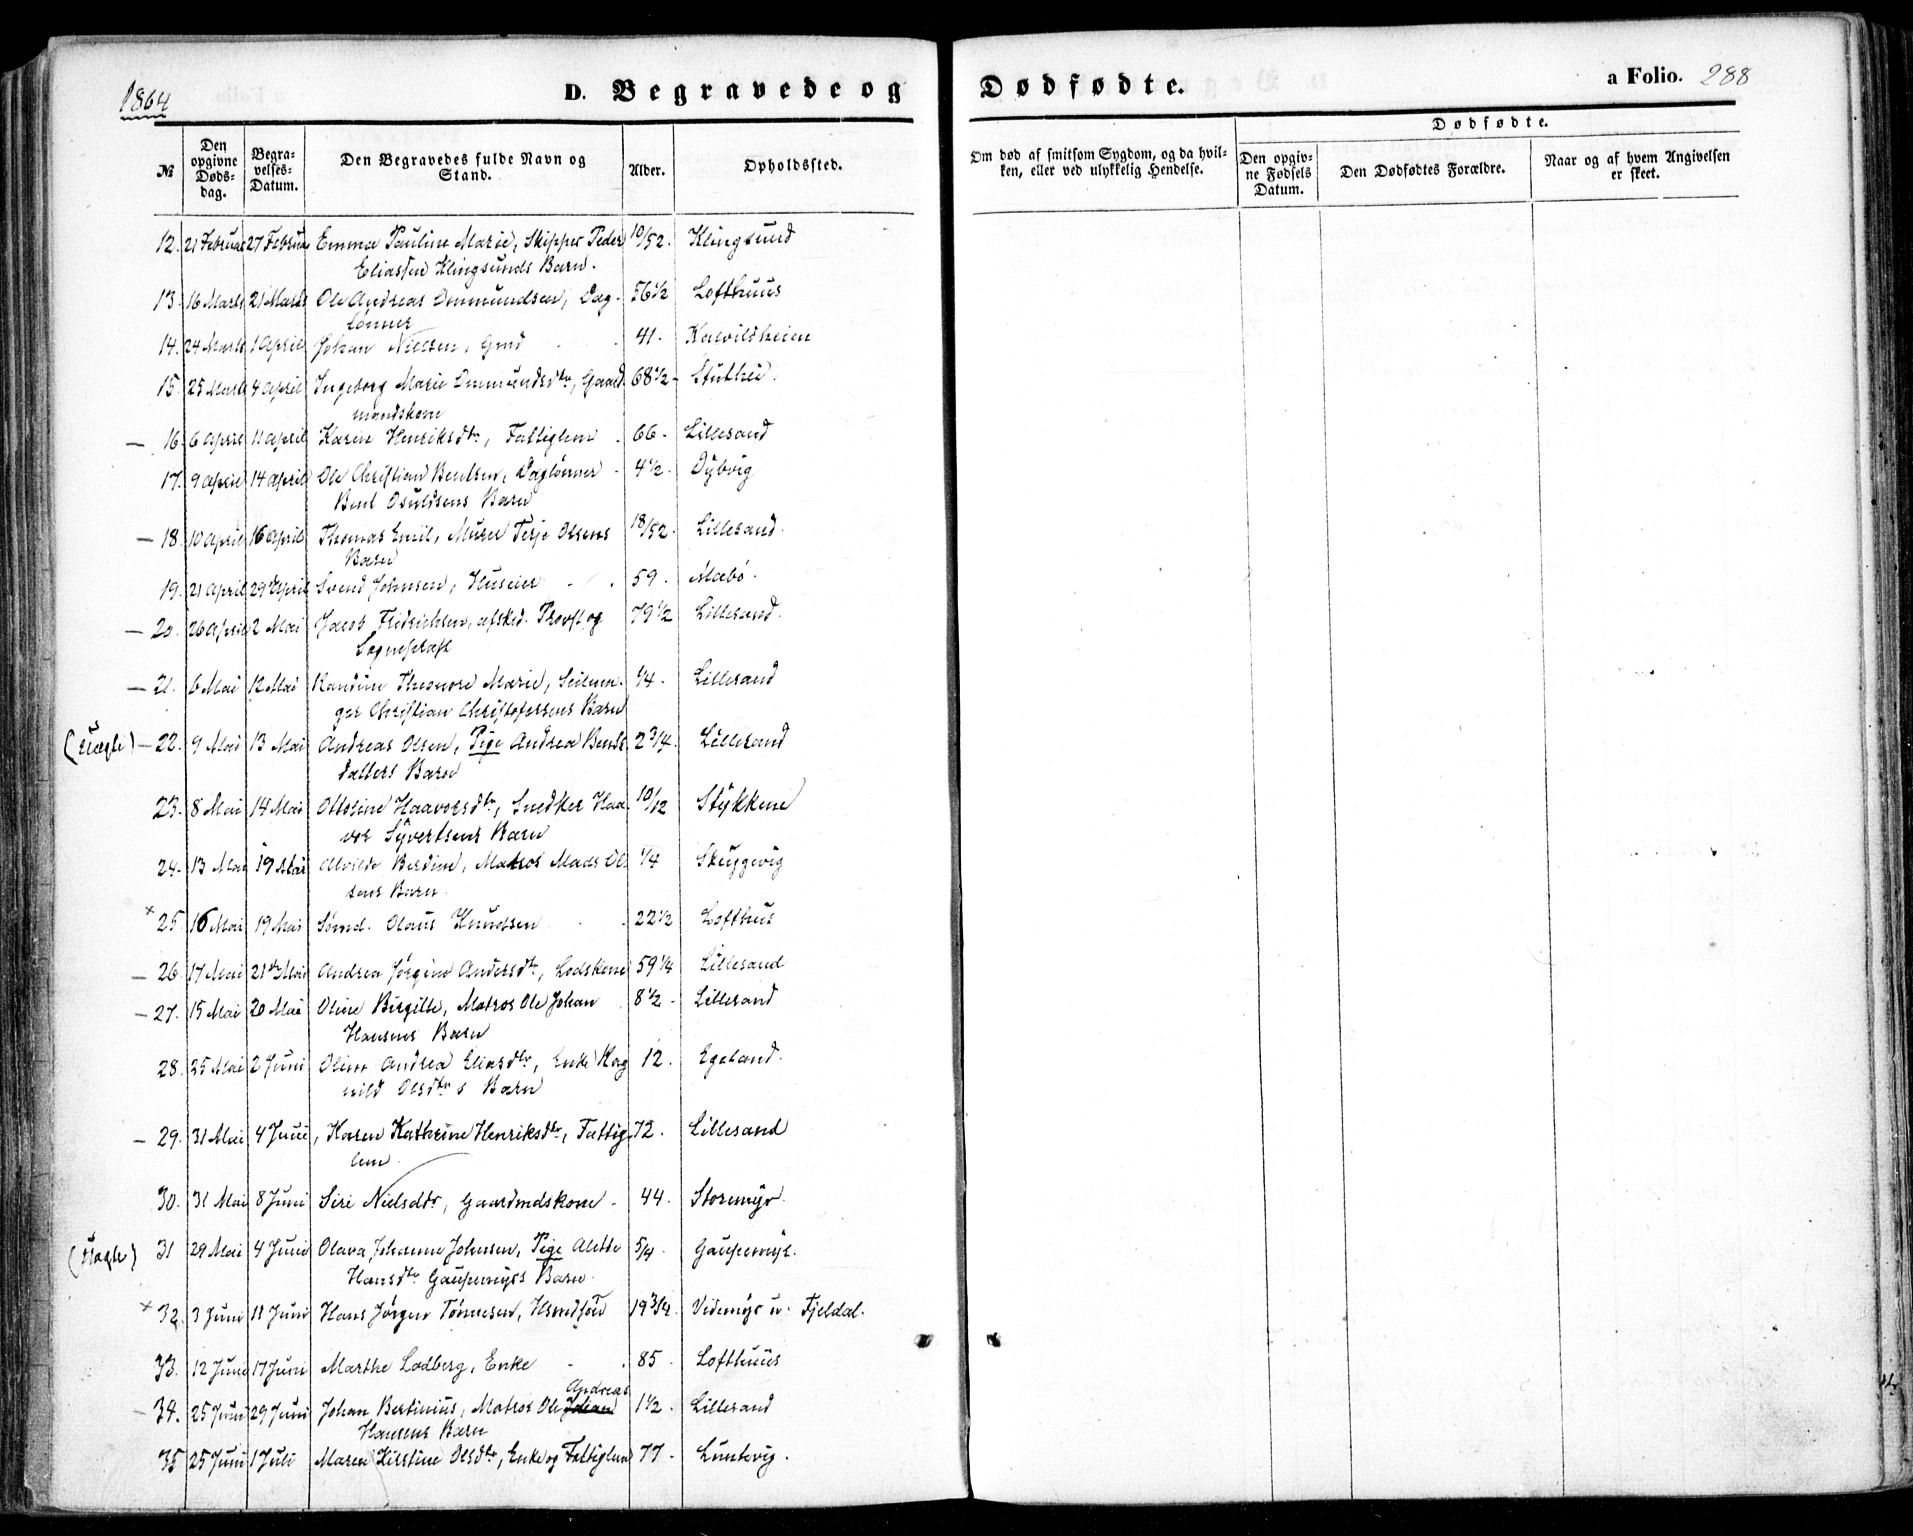 1864
D. Begravede og
Dødfødte.
a Folio. 288
№
Den opgivne Døds-dag.
Begra-velses-Datum.
Den Begravedes fulde Navn og Stand.
Alder.
Opholdssted.
Om død af smitsom Sygdom, og da hvil-ken, eller ved ulykkelig Hendelse.
Dødfødte.
Den opgiv-ne Fødsels Datum.
Den Dødfødtes Forældre.
Naar og af hvem Angivelsen er skeet.
12. 21 Februar 27 Februar Emma Pauline Marie, Skipper Peder 10/52. Klingsund
Eliassen Klingsunds Barn.
13. 16 Marts 21 Marts Ole Andreas Ommundsen, Dag- 56 1/2 Lofthuus
lönner
14. 24 Marts 1 April Johan Nielsen, Gmd 41. Kalvildheien
15. 25 Marts 4 April Ingeborg Marie Ommundsdtr, Gaard 68 1/2 - Stuthei.
mandskone
— 16. 6 April 11 April Karen Henriksdtr, Fattiglem . 66 - Lillesand
17. 9 April 14 April Ole Christian Bentsen, Daglönner - 4 1/2 - Dybvig
Bent Osuldsens Barn
— 18. 10 April 16 April Thomas Emil, Murer Terje Olsens 18/52. Lillesand.
Barn
19. 21 April 29 April Svend Johnsen, Huseier 59. Mæbö.
— 20. 26 April 2 Mai Jacob Fridrichsen, afsked. Provst og 79 1/2 Lillesand.
Sognepræst
— 21. 6 Mai 12 Mai Randine Theonore Marie, Seilma- 1/4 - Lillesand
ger Christian Christofersens Barn
(Uægte) — 22. 9 Mai 13 Mai Andreas Olsen, Pige Andrea Bents 2 3/4. Lillesand
datters Barn
23. 8 Mai 14 Mai Ottoline Haavorsdtr, Snedker Haa 10/12 Stykkene
vor Syvertsens Barn
24. 13 Mai 19 Mai Alvilde Berdine, Matros Mads Ol 1/4 Skuggevig
sens Barn.
× 25. 16 Mai 19 Mai Sömd. Olaus Knudsen . 22 1/2 Lofthus
— 26. 17 Mai 21 Mai Andrea Jørgine Andersdtr, Lodskone 59 1/4 Lillesand
— 27. 15 Mai 20 Mai Oline Birgitte, Matros Ole Johan 8 1/2 - Lillesand
Hansens Barn
28. 25 Mai 2 Juni Oline Andrea Eliasdtr, Enke Rag 12. Egeland.
nild Olsdtrs Barn
— 29. 31 Mai 4 Juni Karen Kathrine Henriksdtr, Fattig 72. Lillesand
lem.
30. 31 Mai 8 Juni Siri Nielsdtr, Gaardmdskone - 44. Storemyr.
(Uægte) 31 29 Mai 4 Juni Olava Johanne Johnsen, Pige Alette 5/4. Gaupemyr.
Hansdtr Gaupemyrs Barn.
× 32. 3 Juni 11 Juni Hans Jørgen Tönnesen, 19 3/4. Videmyr u. Fjeldal.
33. 12 Juni 17 Juni Marthe Lodberg, Enke - . 85 Lofthuus
Andreas
— 34. 25 Juni 29 Juni Johan Bertinius, Matros Ole Johan 1 1/2. Lillesand
Hansens Barn
35 25 Juni 1 Juli Maren Kirstine Olsdtr, Enke og Fattiglem 77 - Luntevig.